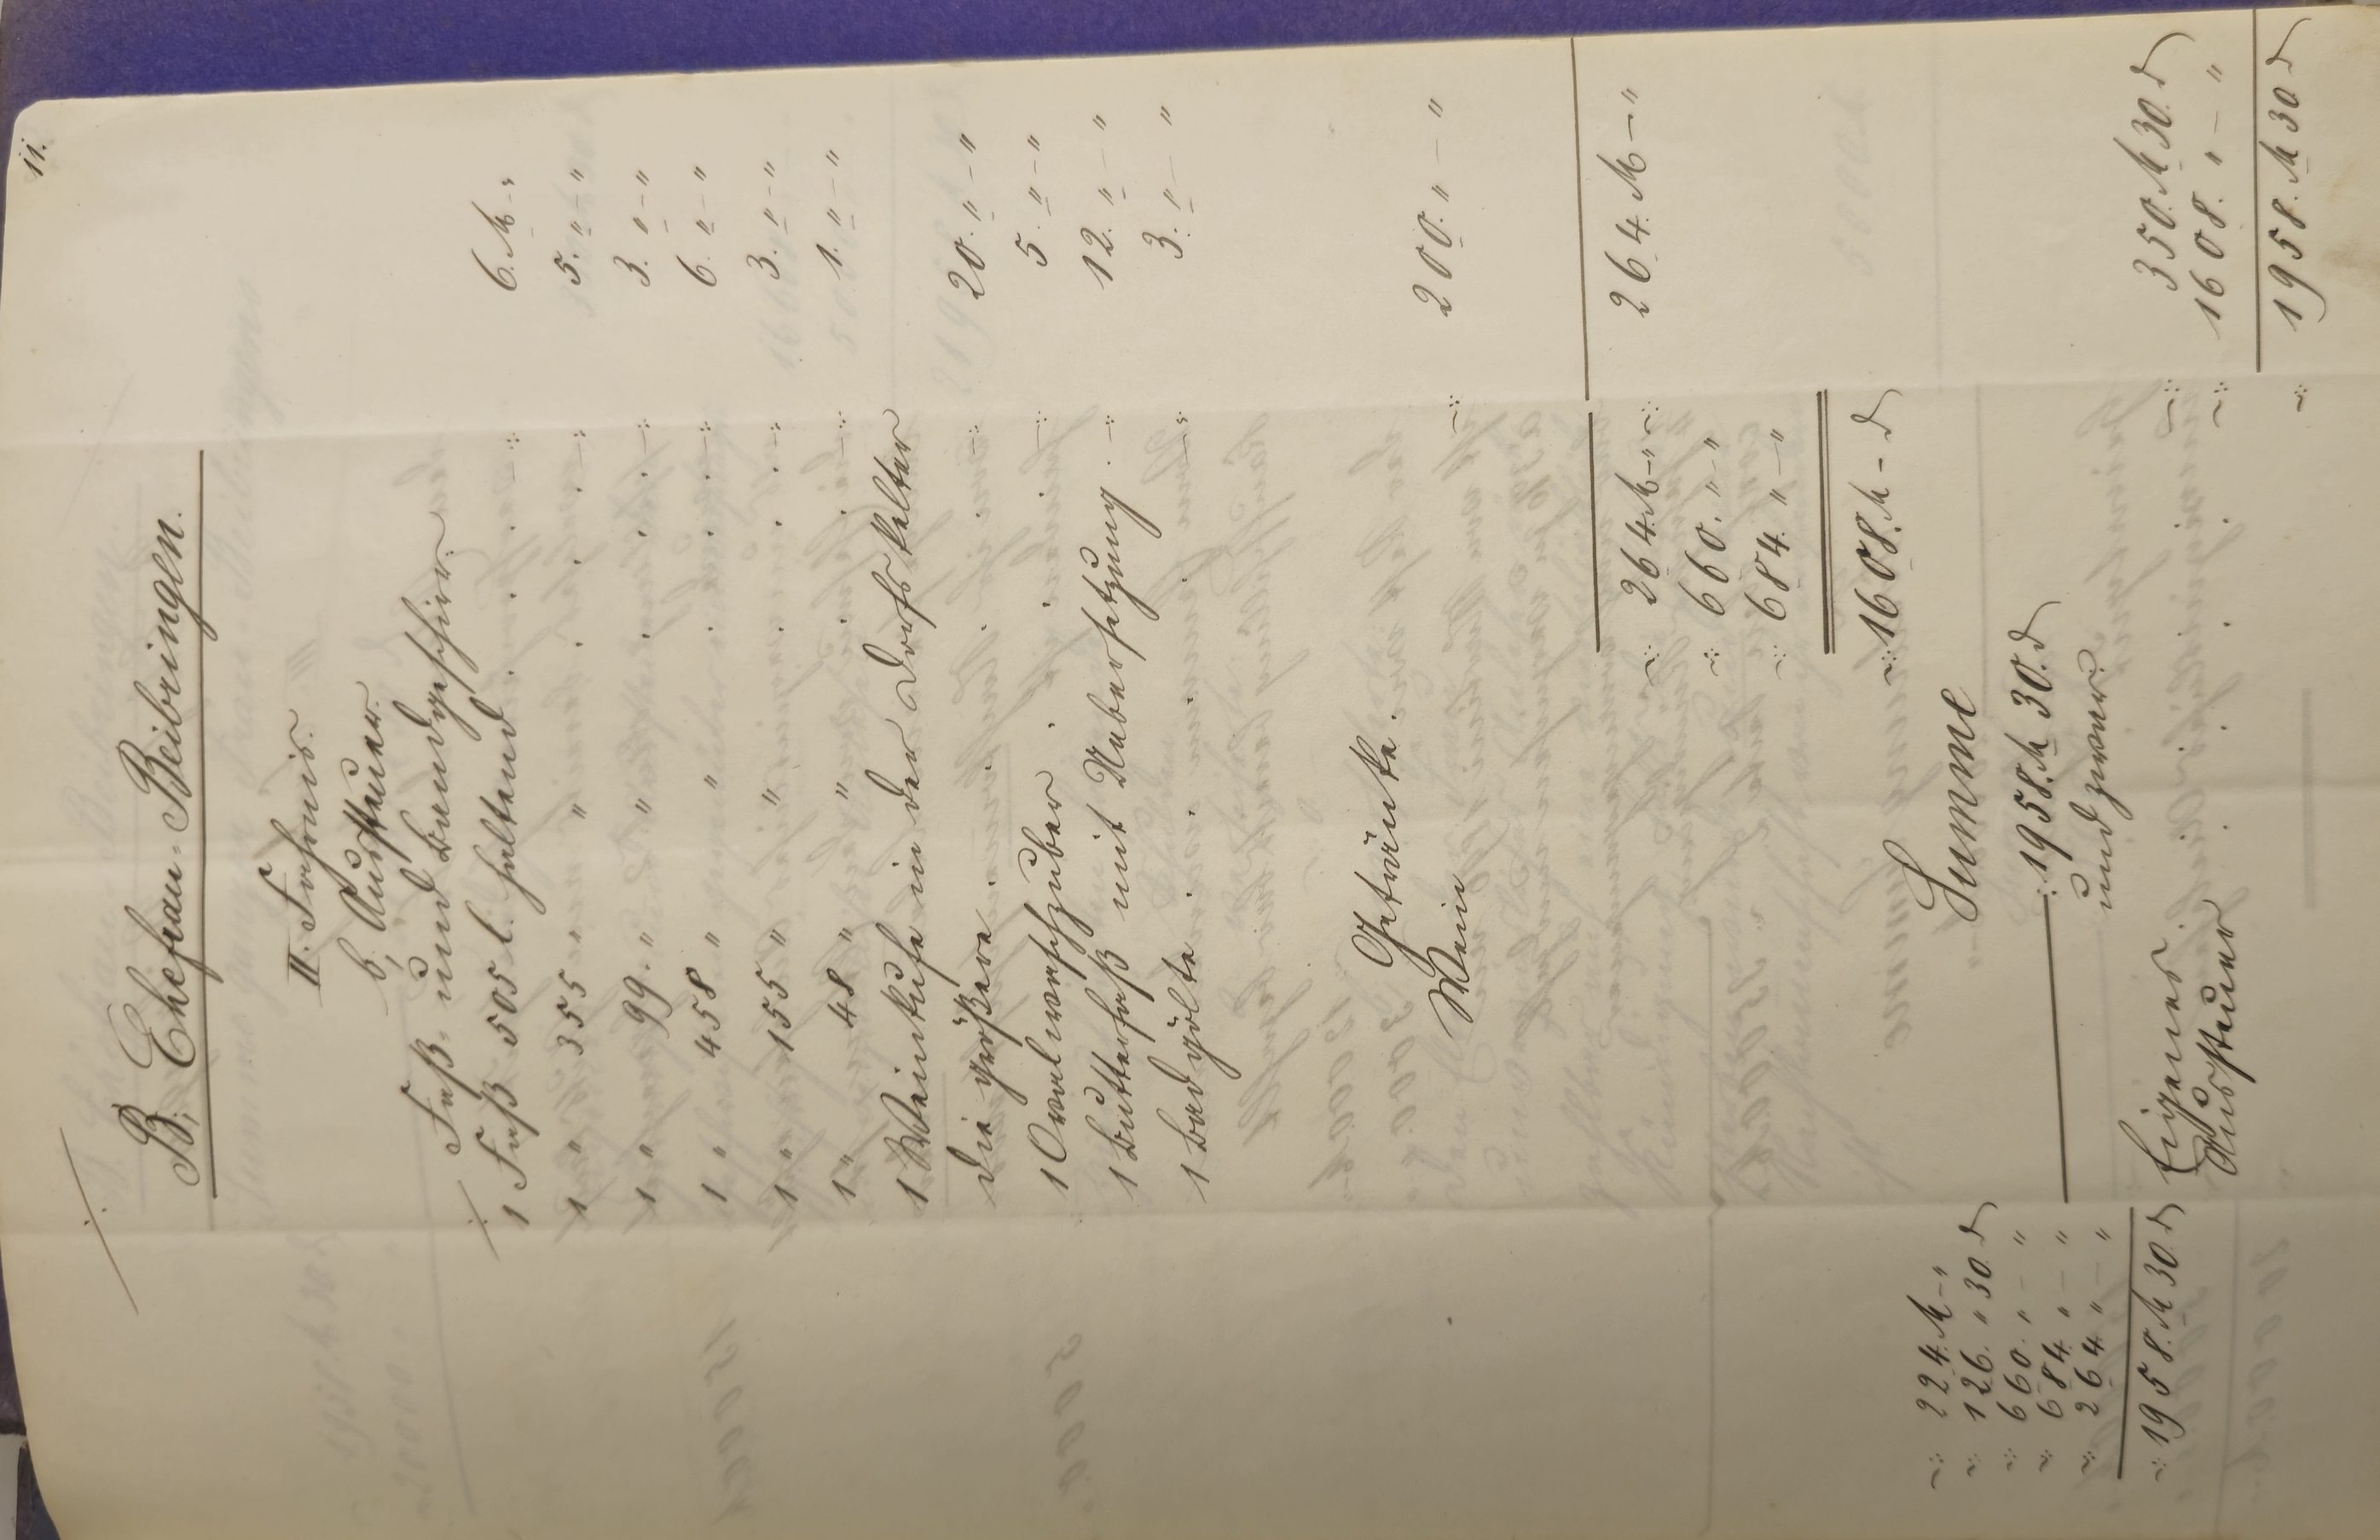 11.
B., Ehefrau-Beibringen.
II. Fahrnis.
b, Aussteuer.
Faß- und Bandgeschirr.
1 Faß 505 l. haltend . . . —:. 6. M — „
1 „ 355 „ „ . . . —:. 5. „ — „
1 „ 99. „ „ . . . —:. 3. „ — „
1 „ 458 „ „ . . . —:. 6. „ — „
1 „ 155 „ „ . . . —:. 3. „ — „
1 „ 48 „ „ . . . —:. 1. „ — „
1 Weinkufe in der Dorfskelter
die größere . . . . —:. 20. „ — „
1 Ovalwaschzuber . . . —:. 5. „ — „
1 Butterfaß mit Uebersetzung . —:. 12. „ — „
1 Badgölte . . . . —:. 3. „ — „
Getränke.
Wein —:. 200. „ — „
—:. 264. M — „ 264. M — „
—:. 660. „ — „
—:. 684. „ — „
—:. 1608. M — d
Summe
—:. 1958. M 30. d
und zwar:
Eigenes . . . . —:. 350. M 30. d
Aussteuer . . . . —:. 1608. „ — „
—:. 1958. M 30 d
—:. 224. M — „
—:. 126. „ 30 d
—:. 660. „ — „
—:. 684. „ — „
—:. 264. „ — „
—:. 1958. M 30. d